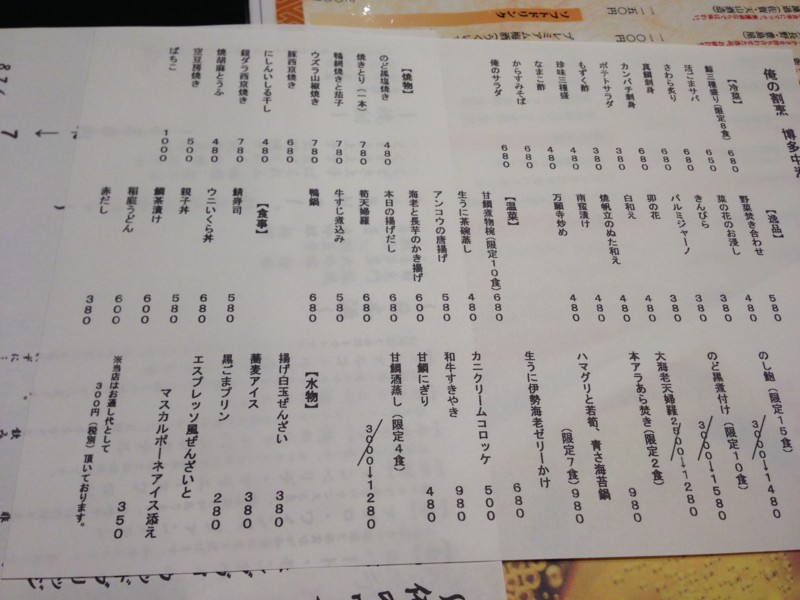 俺の割烹 博多中洲
【冷菜】
鮨三種盛り(限定8食) 680
活ごまサバ 650
さわら炙り 680
真鯛刺身 680
カンパチ刺身 680
ポテトサラダ 380
もずく酢 380
珍味三種盛 480
なまこ酢 480
からすみそば 680
俺のサラダ 680
【焼物】
のど黒塩焼き 480
焼きとり(一本) 780
鴨網焼きと茄子 780
ウズラ山椒焼き 780
豚西京焼き 680
にしんいしる干し 480
銀ダラ西京焼き 780
焼胡麻とうふ 480
空豆房焼き 500
ばちこ 1000
【逸品】
野菜焚き合わせ 580
菜の花のお浸し 480
きんぴら 380
パルミジャーノ 380
卯の花 380
白和え 480
焼帆立のぬた和え 480
南蛮漬け 480
万願寺炒め 480
【温菜】
甘鯛煮物椀(限定10食) 680
生うに茶碗蒸し 480
アンコウの唐揚げ 580
海老と長芋のかき揚げ 600
本日の揚げだし 680
筍天婦羅 680
牛すじ煮込み 580
鴨鍋 680
【食事】
鯖寿司 580
ウニいくら丼 680
親子丼 580
鯛茶漬け 600
稲庭うどん 600
赤だし 380
のし鮑(限定15食)
3000→1480
のど黒煮付け(限定10食)
3000→1580
大海老天婦羅 2500→1280
本アラあら焚き(限定2食) 980
ハマグリと若筍、青さ海苔鍋
(限定7食) 980
生うに伊勢海老ゼリーかけ 680
カニクリームコロッケ 500
和牛すきやき 980
甘鯛にぎり 480
甘鯛酒蒸し(限定4食)
3000→1280
【水物】
揚げ白玉ぜんざい 380
蕎麦アイス 380
黒ごまプリン 280
エスプレッソ風ぜんざいと
マスカルポーネアイス添え 350
※当店はお通し代として
300円(税別)頂いております。
ソフトドリンク